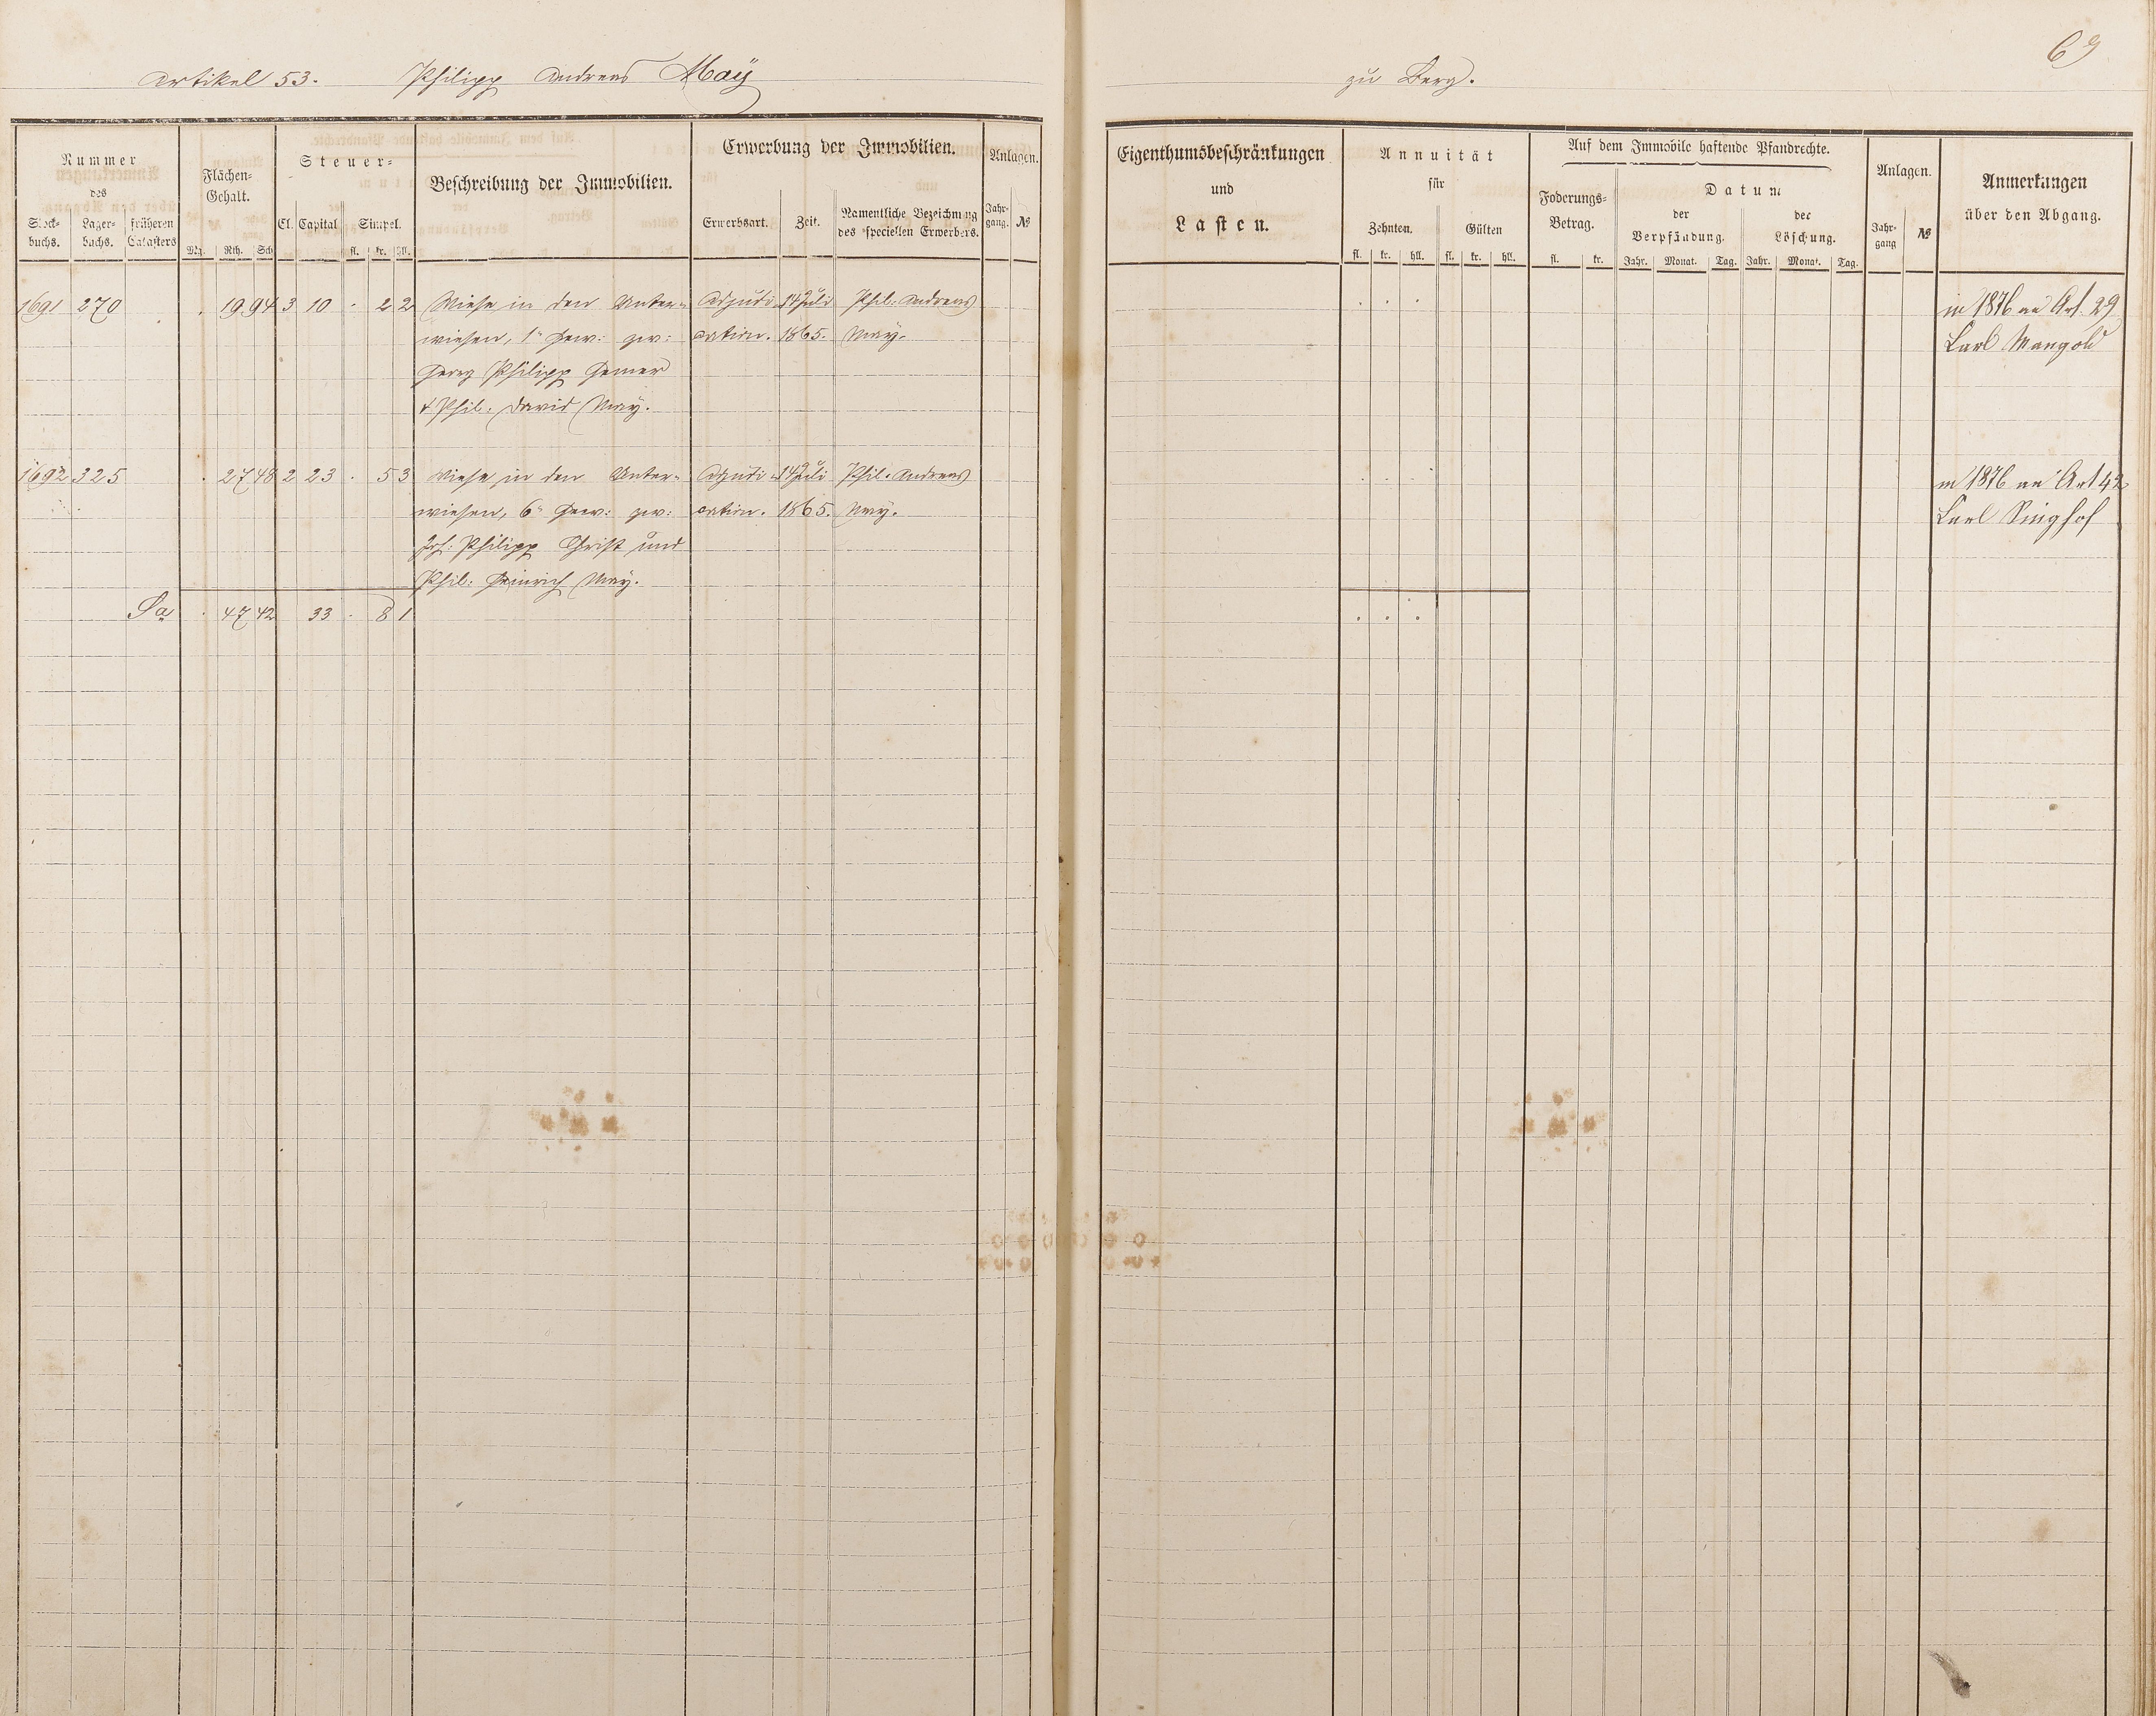 Artikel 53. Philipp Andreas Maÿ
zu Berg.
69
Nummer
des
Stock-
buchs.
Lager-
buchs.
früheren
Catasters
Flächen-
Gehalt.
Mg. Rth. Sch
Steuer-
Cl. Capital Simpel.
fl. kr. hll.
Beschreibung der Immobilien.
Erwerbung der Immobilien.
Erwerbsart. Zeit. Namentliche Bezeichnung
des speciellen Erwerbers.
Anlagen.
Jahr-
gang. №
Eigenthumsbeschränkungen
und
Lasten.
Annuität
für
Zehnten. Gülten
fl. kr. hll. fl. kr. hll.
Auf dem Immobile haftende Pfandrechte.
Foderungs-
Betrag.
fl. kr.
Datum
der
Verpfändung.
der
Löschung.
Jahr. Monat. Tag. Jahr. Monat. Tag.
Anlagen.
Jahr-
gang №
Anmerkungen
über den Abgang.
1691 270 . 19 94 3 10 . 2 2 Wiese in den Unter- Adjudi- 14 Juli Phil. Andreas . . . in 1876 an Art. 29
wiesen, 1" Gew: zw: cation. 1865. Maÿ. Carl Mangold
Georg Philipp
& Phil. David Maÿ.
1692 325 . 27 48 2 23 . 5 3 Wiese in den Unter- Adjudi- 14 Juli Phil. Andreas . . . in 1876 an Art 42
wiesen, 6" Gew: zw: cation. 1865. Maÿ. Carl Singhof
Joh: Philipp Christ und
Phil: Heinrich Maÿ.
Sa . 47 42 33 . 8 1 . . .